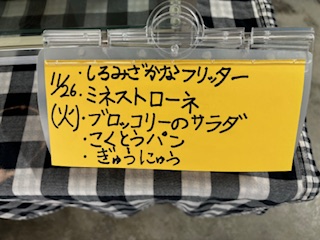 ・しろみざかなフリッター
11/26.・ミネストローネ
(火)・ブロッコリーのサラダ
・こくとうパン
・ぎゅうにゅう